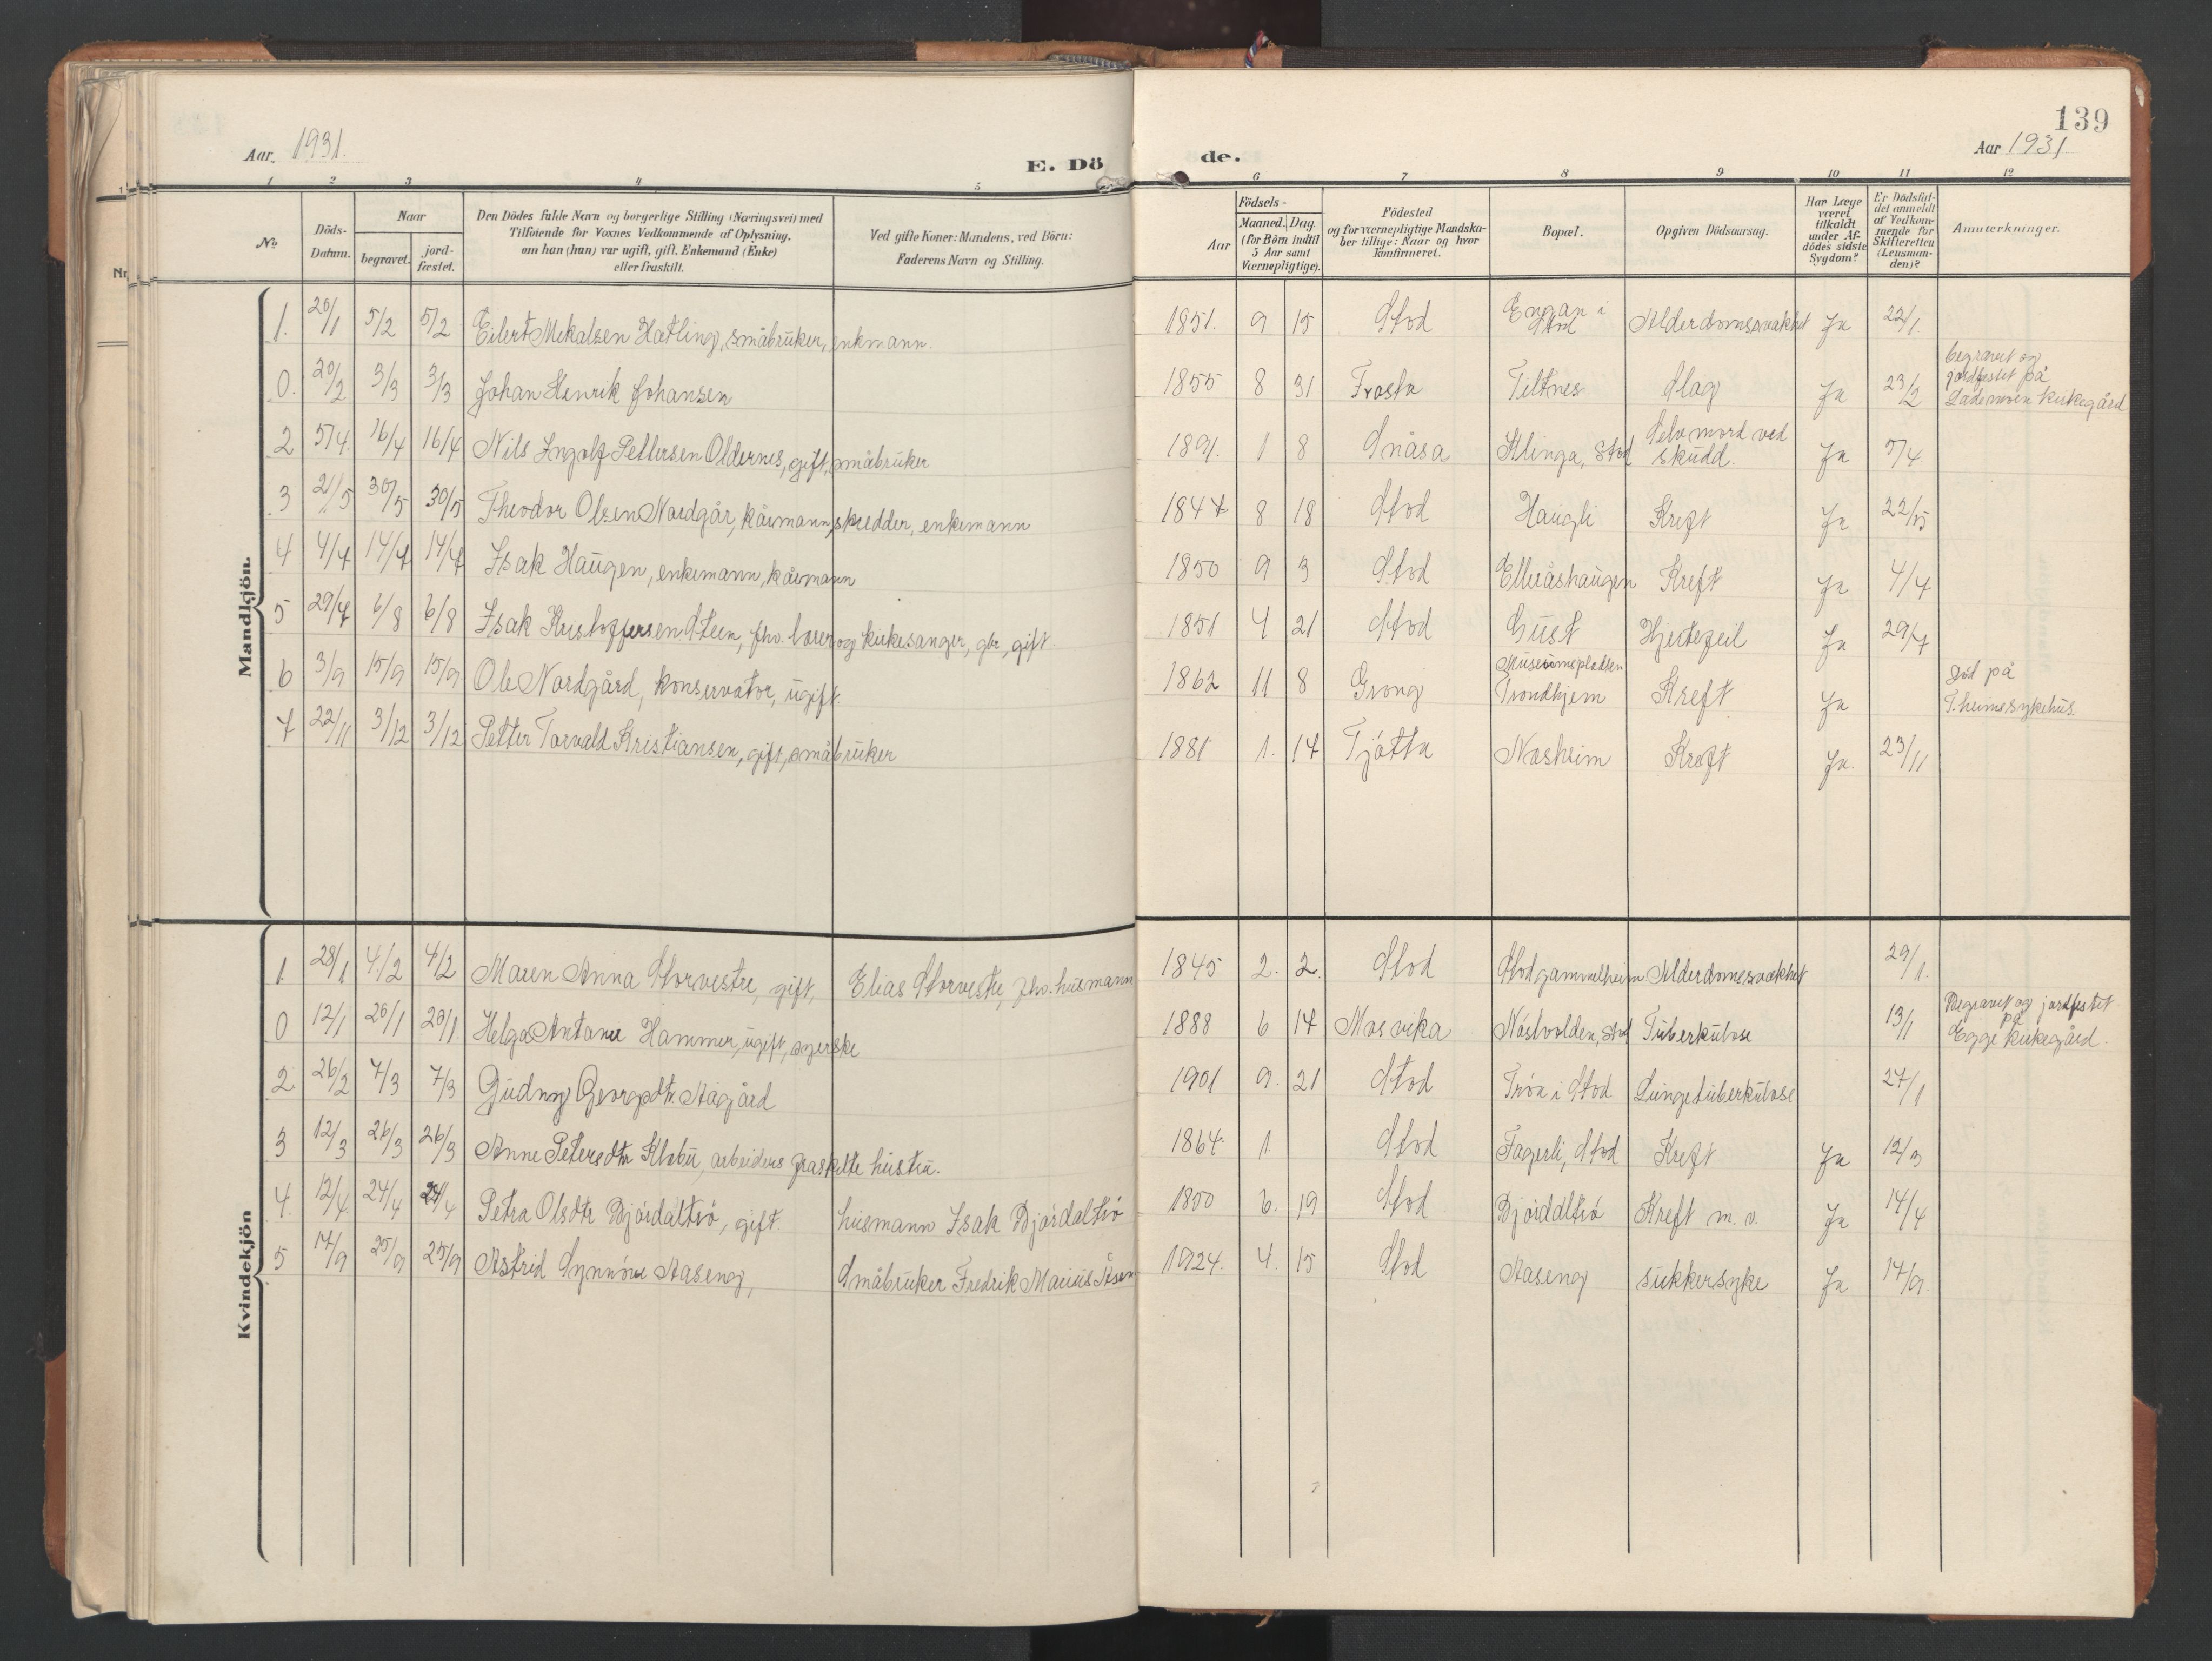 139
Aar 1931.
E. Dö
de.
Aar 1931.
1 2 3 4 5
6 7 8 9 10 11 12
No
Döds-Datum.
Naar
begravet.
jord-fæstet.
Den Dödes fulde Navn og borgerlige Stilling (Næringsvei) med
Tilföiende for Voxnes Vedkommende af Oplysning,
om han (hun) var ugift, gift, Enkemand (Enke)
eller fraskilt.
Ved gifte Koner: Mandens, ved Börn:
Faderens Navn og Stilling.
Födsels-
Aar
Maaned. Dag.
(for Börn indtil
5 Aar samt
Værnepligtige).
Födested
og for værnepligtige Mandska-
ber tillige: Naar og hvor
konfirmeret.
Bopæl.
Opgiven Dödsaarsag.
Har Læge
været
tilkaldt
under Af-
dödes sidste
Sygdom?
Er Dödsfal-
det anmeldt
af Vedkom-
mende for
Skifteretten
(Lensman-
den)?
Anmærkninger.
Mandkjön.
1. 20/1 5/2 5/2 Eilert Mikalsen Hatling, småbruker, enkmann. 1851. 9 15 Stod Engan i Stod Alderdomssvakhet Ja 22/1.
0. 20/2 3/3 3/3 Johan Henrik Johansen 1855 8 31 Frosta Teltnes Slag Ja 23/2 begravet og jordfestet på Lademoen kirkegård
2 5/4. 16/4 16/4 Nils Ingolf Pettersen Oldernes, gift, småbruker 1891. 1 8 Snåsa Klinga, Stod Selvmord ved skudd. Ja 7/4
3 21/5 30/5 30/5 Theodor Olsen Nordgår, kårmann, skredder, enkemann 1847 8 18 Stod Haugli Kreft Ja 22/5
4 4/7 14/7 14/7 Isak Haugen, enkemann, kårmann 1850 9 3 Stod Elleråshaugen Kreft Ja 4/7
5 29/7 6/8 6/8 Isak Kristoffersen Steen, fhv. lærer og kirkesanger, gbr, gift. 1851 4 21 Stod Gust Hjertefeil Ja 29/7
6 3/9 15/9 15/9 Ole Nordgård, konservator, ugift. 1862 11 8 Grong Museumsplassen Trondhjem Kreft Ja død på T.heims sykehus.
7 22/11 3/12 3/12 Petter Torvald Kristiansen, gift, småbruker 1881 1. 17 Tjøtta Nosheim Kreft Ja. 23/11
Kvindekjön
1 28/1 4/2 4/2 Maren Anna Storvestre, gift, Elias Storvestre, fhv. husmann 1845 2. 2. Stod Stod gammelheim Alderdomssvakhet 29/1.
0 12/1 20/1 20/1. Helga Antonie Hammer, ugift, syerske 1888 6 17 Mosvika Nåstvolden, Stod Tuberkulose 13/1 Begravet og jordfestet på Egge kirkegård.
2 26/2 7/3 7/3 Gudny Georgsdtr. Aagård 1901 9. 21 Stod Trøa i Stod Lungetuberkulose 27/1
3 12/3 26/3 26/3 Anne Petersdtr Klæbu, arbeiders fraskilte hustru. 1864. 1. Stod Fagerli, Stod Kreft Ja 12/3
4. 12/4 24/4 24/4 Petra Olsdtr Bjørdaltrø, gift husmann Isak Bjørdaltrø 1850 6. 19 Stod Bjørdaltrø Kreft m. v. Ja 14/4
5 17/9 25/9 25/9 Astrid Synnøve Aaseng, Småbruker Fredrik Marius Åsen 1924. 4. 15 Stod Aaseng sukkersyke Ja 17/9.